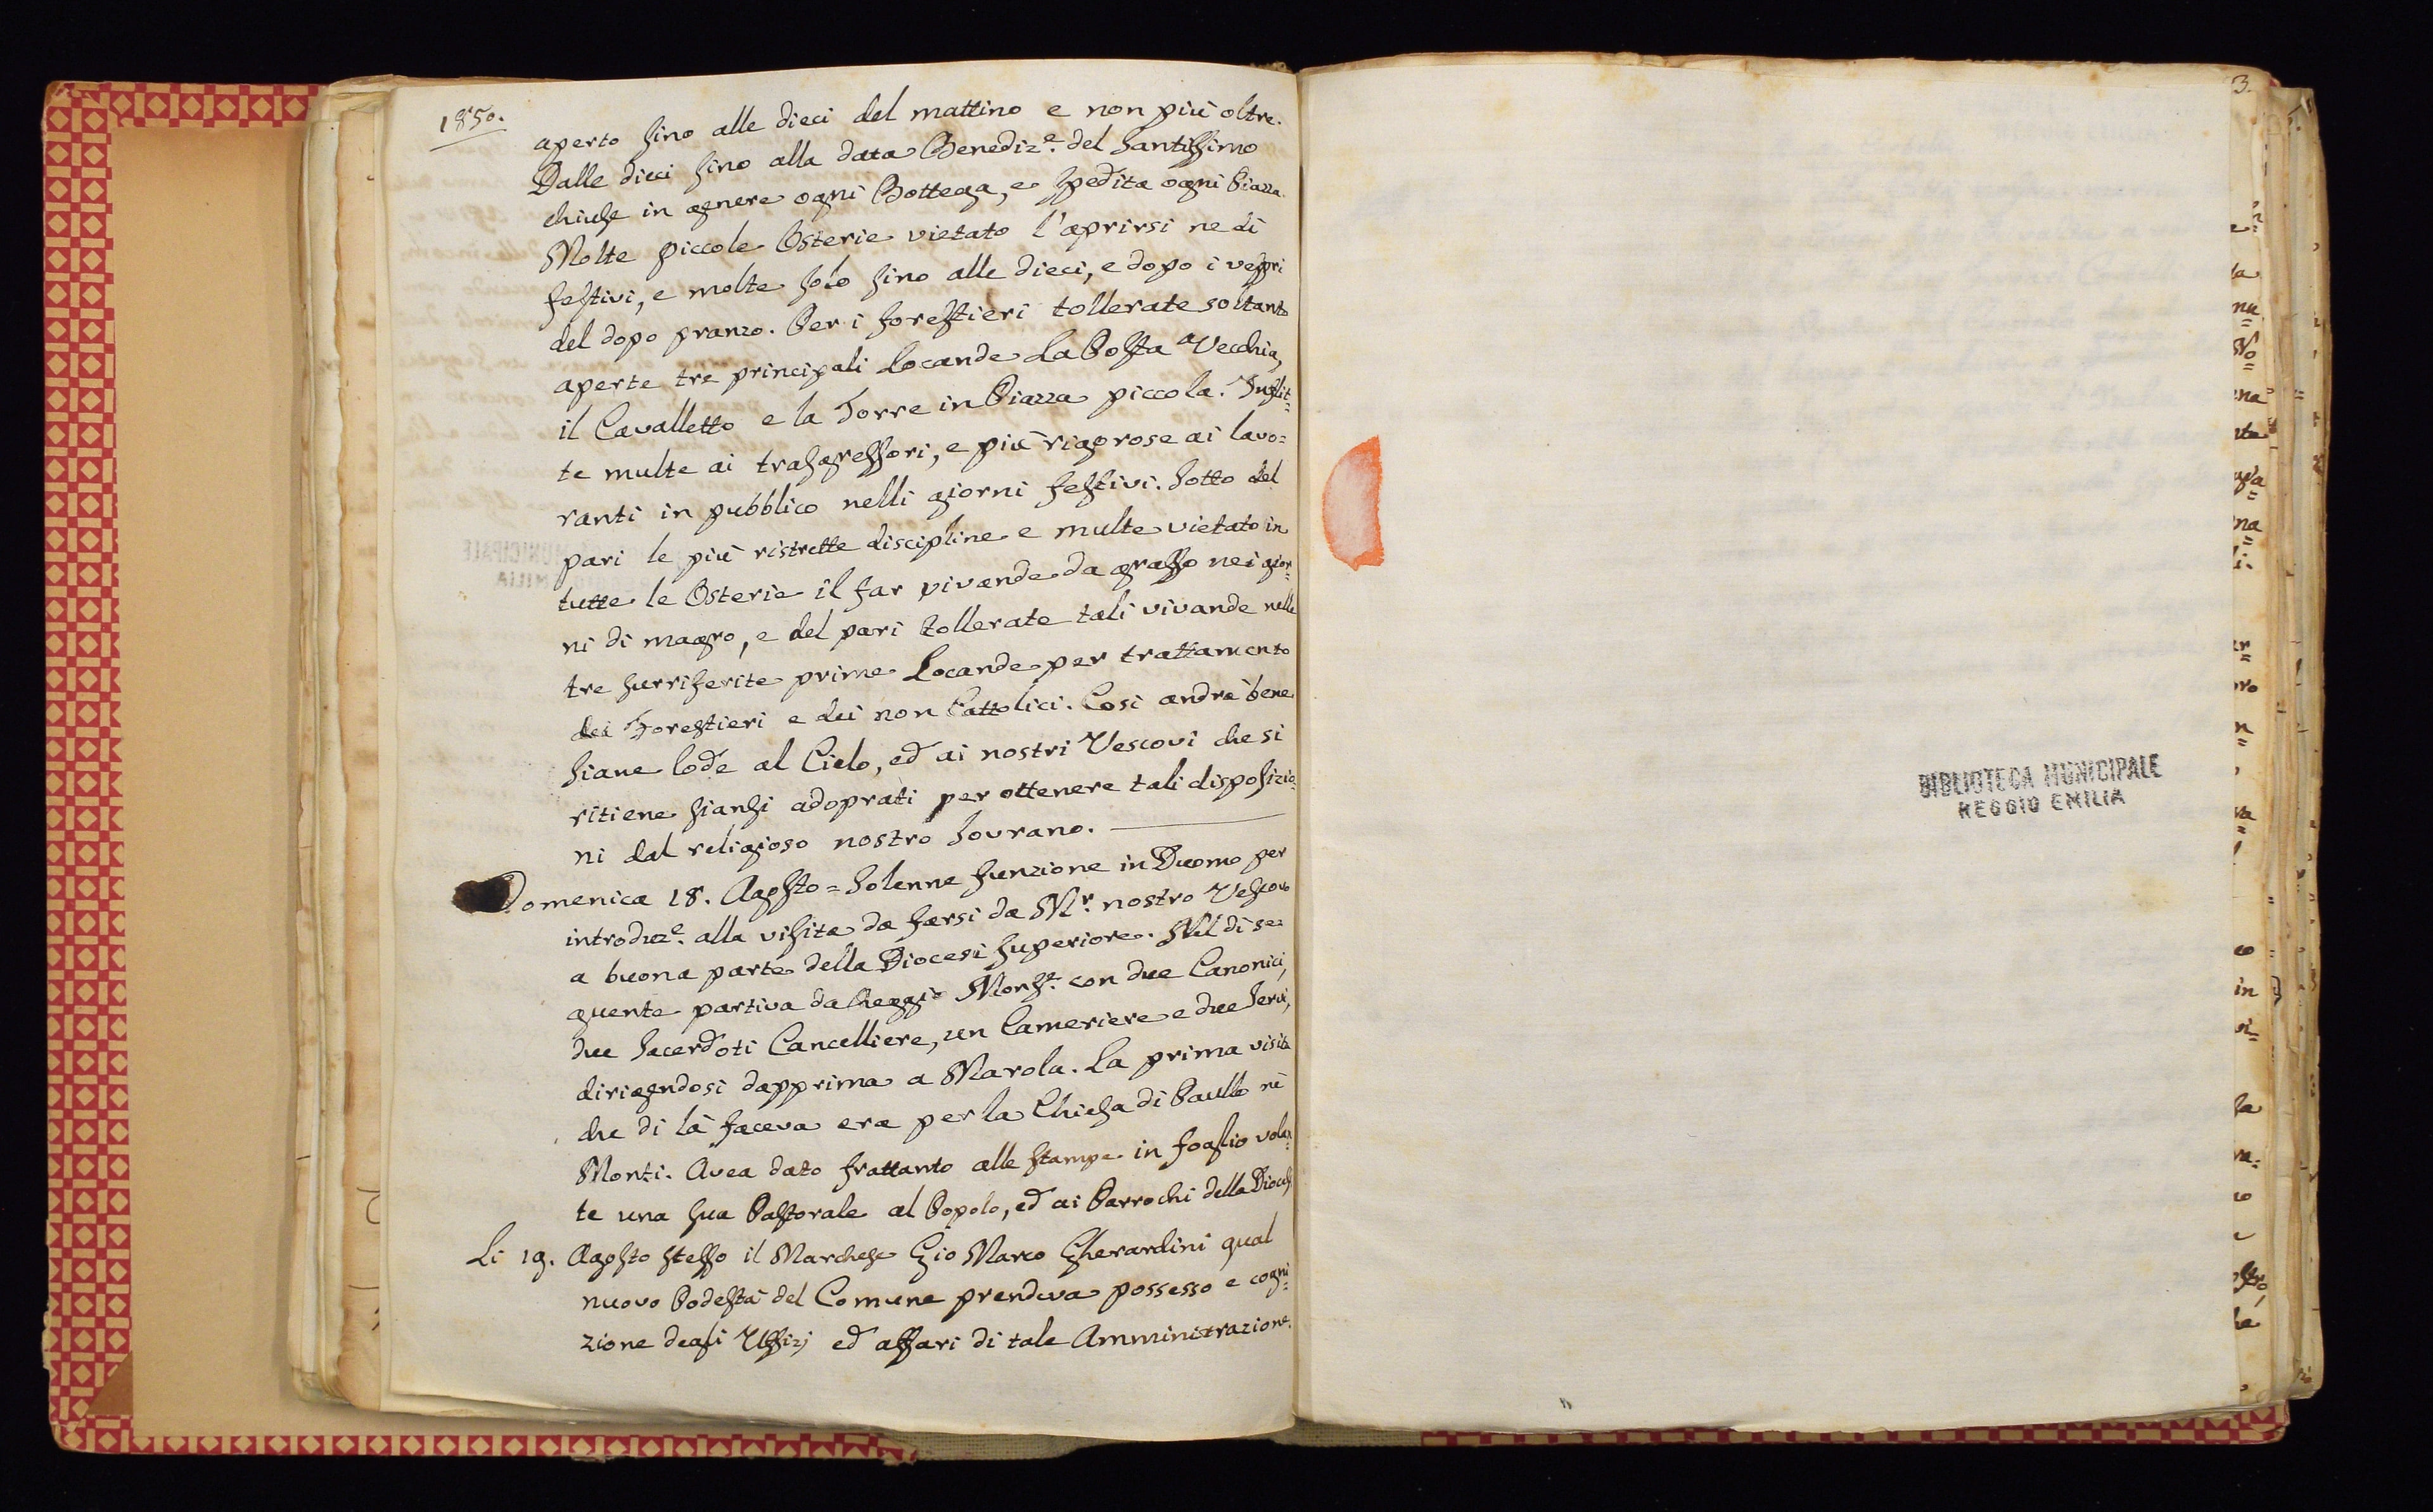 1850.
aperto sino alle dieci del mattino e non più oltre.
Dalle dieci sino alla data Benediz.e del Santissimo
chiuse in genere ogni Bottega, e spedita ogni Piazza.
Molte piccole Osterie vietato l'aprirsi ne dì
festivi, e molte solo sino alle dieci, e dopo i vespri
del dopo pranzo. Per i forestieri tollerate soltanto
aperte tre principali Locande La Posta Vecchia,
il Cavalletto e la Torre in Piazza piccola. Inflit=
te multe ai trasgressori, e più rigorose ai lavo=
ranti in pubblico nelli giorni festivi. Sotto del
pari le più ristrette discipline e multe vietato in
tutte le Osterie il far vivande da grasso nei gior=
ni di magro, e del pari tollerate tali vivande nelle
tre surriferite prime Locande per trattamento
dei Forestieri e dei non Cattolici. Così andrà bene
siane lode al Cielo, ed ai nostri Vescovi che si
ritiene siansi adoprati per ottenere tali disposizio=
ni dal religioso nostro Sovrano.
Domenica 18. Agosto = Solenne funzione in Duomo per
introduz.e alla visita da farsi da M.r nostro Vescovo
a buona parte della Diocesi superiore. Nel dì se=
guente partiva da Reggio Mons.r con due Canonici,
due Sacerdoti Cancelliere, un Cameriere e due Servi,
dirigendosi dapprima a Marola. La prima visita
che di là faceva era per la Chiesa di Paullo nè
Monti. Avea dato frattanto alle stampe in foglio volan=
te una sua Pastorale al Popolo, ed ai Parrochi della Diocesi
Li 19. Agosto stesso il Marchese Gio Marco Gherardini qual
nuovo Podestà del Comune prendeva possesso e cogni=
zione degli Uffizj ed affari di tale Amministrazione.
3.
BIBLIOTECA MUNICIPALE
REGGIO EMILIA